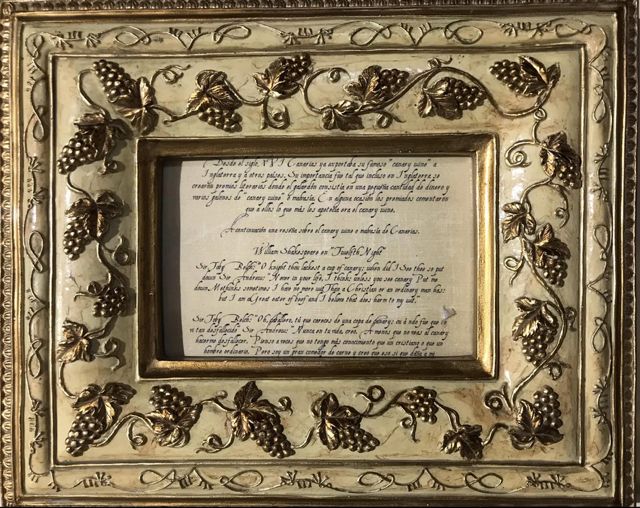 Desde el siglo XVI Canarias ya exportaba su famoso "canary wine" a
Inglaterra y a otros paises. Su importancia fue tal que incluso en Inglaterra se
crearon premios literarios donde el galardón consistía en una pequeña cantidad de dinero y
varios galones de "canary wine" o malvasia. En alguna ocasión los premiados comentarían
que a ellos lo que más les apetecía era el canary wine.
A continuación una reseña sobre el canary wine o malvasia de Canarias.
William Shakespeare en "Twelfth Night"
Sir Toby Belch: "O knight thou lackest a cup of canary; when did I See thee so put
down Sir Andrews "Never in your life, I think; unless you see canary Put me
down. Methinks sometimes I have no more wit Than a Christian or an ordinary man has:
but I am A great eater of beef and I believe that does harm to my wit."
Sir Toby Belch: "Oh, caballero, tú que careces de una copa de canary; cuándo fue que te
vi tan desfallecido" Sir Andrews: "Nunca en tu vida, creo, A menos que no veas al canary
hacerme desfallecer. Pienso a veces que no tengo más conocimiento que un cristiano o que un
hombre ordinario. Pero soy un gran comedor de carne y creo que eso si que daña a mi